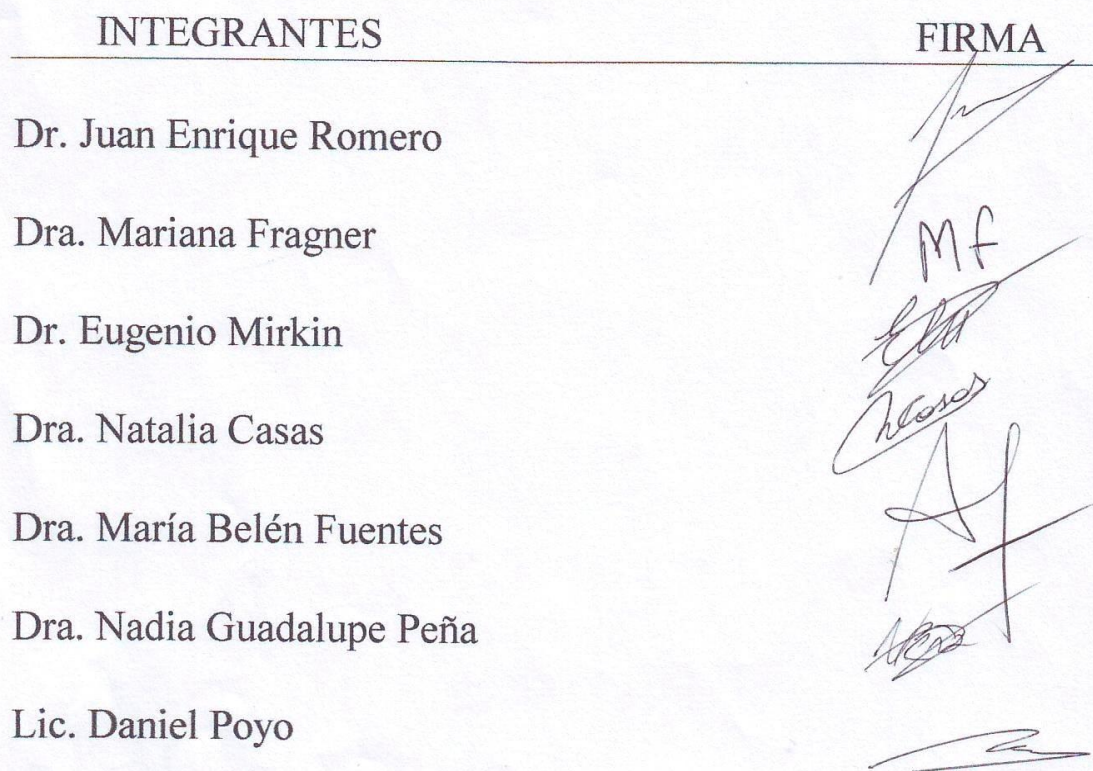 INTEGRANTES FIRMA
Dr. Juan Enrique Romero
Dra. Mariana Fragner MF
Dr. Eugenio Mirkin
Dra. Natalia Casas NCasas
Dra. María Belén Fuentes
Dra. Nadia Guadalupe Peña
Lic. Daniel Poyo